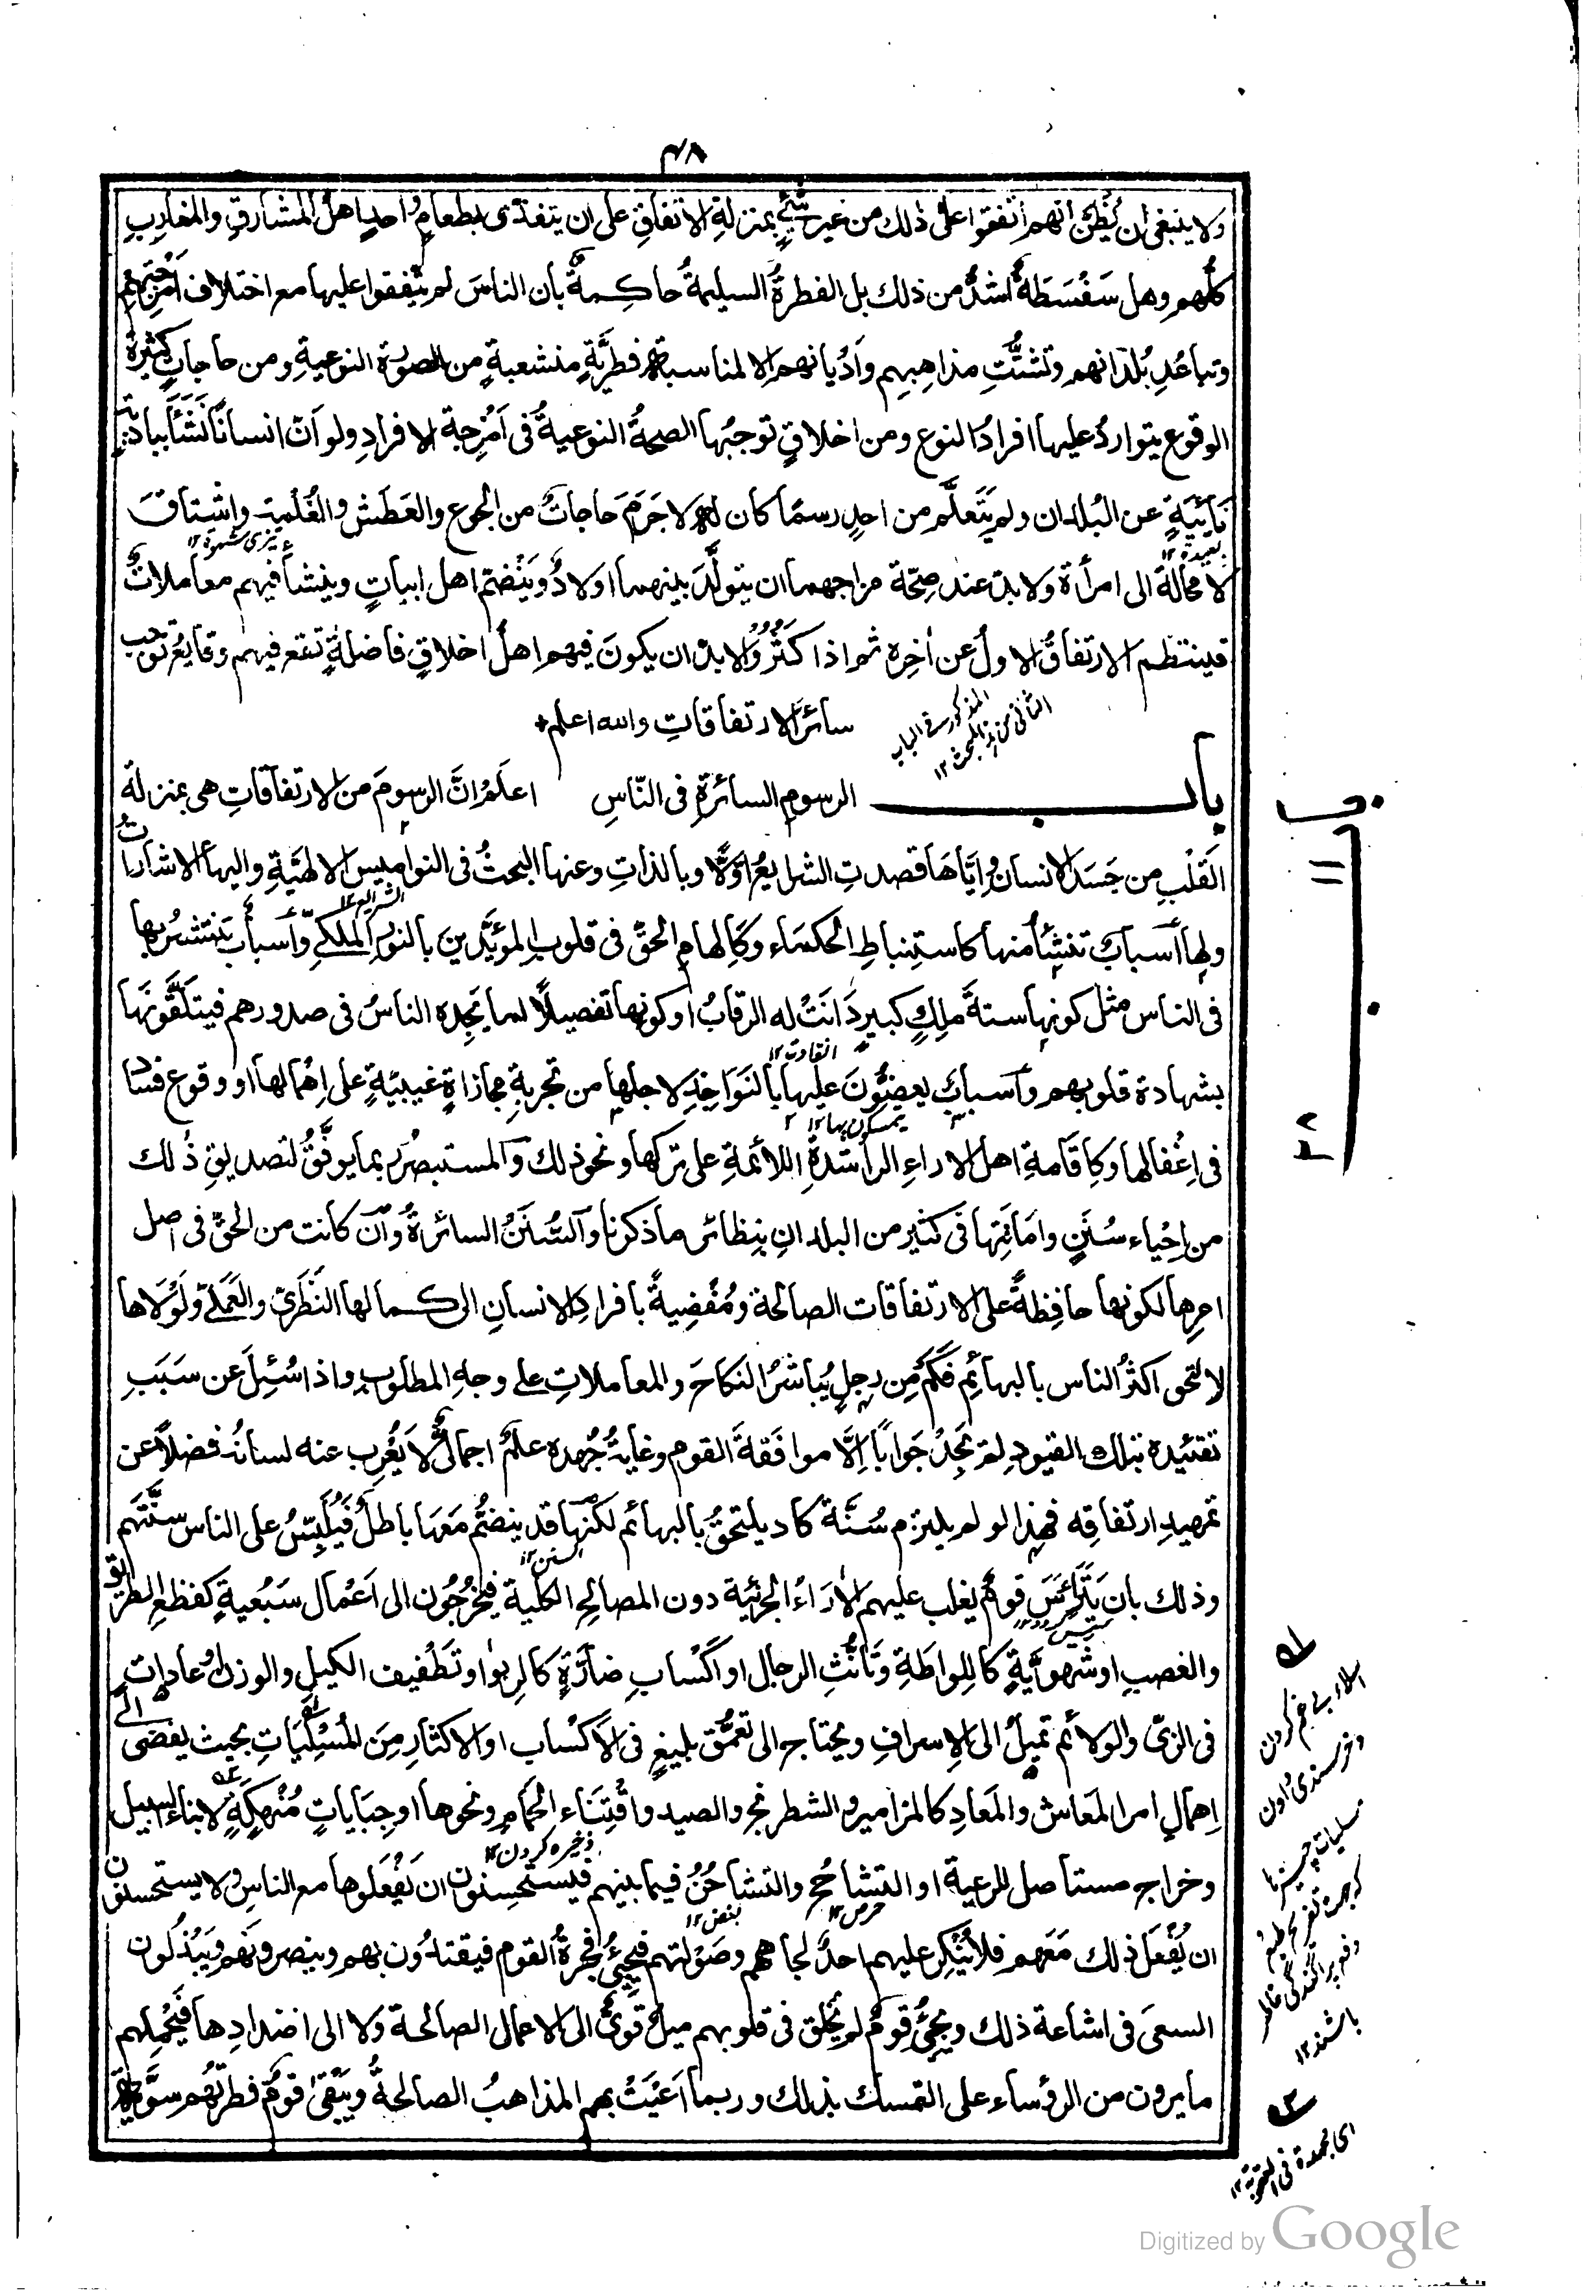 ٤٨
ولا ينبغى ان يُظَنَّ انهم اتفقوا على ذلك من غير شئٍ بمنزلةِ الاتفاقِ على ان يتغذى بطعامٍ واحدٍ اهلُ المشارقِ والمغاربِ
كلُّهم وهل سَفْسَطَةٌ اشدُّ من ذلك بل الفطرةُ السليمةُ حاكمةٌ بأن الناسَ لم يتفقوا عليها مع اختلاف امزجتهم
وتباعُدِ بُلدانهم وتشتُّتِ مذاهبِهم وأَدْيانهم الا لمناسبةٍ فطريَّةٍ منشعبةٍ من الصورة النوعيةِ ومن حاجاتٍ كثيرة
الوقوع يتواردُ عليها افرادُ النوع ومن اخلاقٍ توجبُها الصحةُ النوعيةُ فى اَمْزِجة الافرادِ ولو اَنّ انسانًا نَشَأَ ببادية
نَائِيَةٍ عن البُلدان ولم يَتَعلَّم من احدٍ رسمًا كان له لا جَرَمَ حاجاتٌ من الجوع والعَطَش والغُلْمة واشتاقَ
بعيدة ١٢ تيزى شهوة ١٢
لا محالةَ الى امرأة ولا بد عند صِحّة مزاجهما ان يتولَّدَ بينهما اولادٌ وينضم اهل ابياتٍ وينشأ فيهم معاملاتٌ
فينتظم الارتفاقُ الاولُ عن اٰخِره ثم اذا كَثُرُوا لا بد ان يكونَ فيهم اهلُ اخلاقٍ فاضلةٍ تقع فيهم وقايعُ توجب
سائرَ الارتفاقاتِ والله اعلم
المذكور فى الباب
الثانى من هذا المبحث ١٢
باب الرسومِ السائرةِ فى النّاسِ اعلَمْ اِنَّ الرسومَ من الارتفاقاتِ هى بمنزلة
القَلْبِ من جَسَد الانسان واِيَّاهَا قصدتِ الشرايعُ اوّلًا وبالذاتِ وعنها البحثُ فى النواميس الالهيَّةِ واليها الاشاراتُ
الشرايع ١٢
ولها اَسبابٌ تنشِأُ منها كاستنباطِ الحكماء وكَالهامِ الحقِّ فى قلوب المؤيَّدينَ بالنور المَلَكىِّ واَسبابٌ تنتشرُ بها
فى الناس مثل كونها سنةَ مَلِكٍ كبيرٍ دَانَتْ له الرقابُ اوكونها تفصيلًا لما يَجِدہ الناسُ فى صدورهم فيتلَقَّونَها
انقادت ١٢
بشهادة قلوبهم واَسبابٌ يعضُّونَ عليها بالنَوَاجِذِ لاجلِها من تجربةِ مجازاةٍ غيبيّةٍ على اِهْمالها او وقوع فساد
يمسكون بها ١٢
فى اِغْفالها وكِاقَامةِ اهل الاٰراءِ الراشدةِ اللائمةِ على تركها ونحو ذلك والمستبصرُ بما يوفَّقُ لتصديقِ ذٰلك
من اِحْياء سُنَنٍ واِمَاتَتِها فى كثير من البلدانِ بنظائر ما ذكرنا والسُّنَنُ السائرةُ واِن كانت من الحقِّ فى اصل
امرِها لكونها حافِظةً على الارتفاقات الصالحة ومُفْضِيةً بافرادِ الانسانِ الى كمالها النَظَرىِّ والعَمَلىِّ ولَوْلاها
لالتحق اكثرُ الناس بالبهائم فكَمْ مِن رجلٍ يُباشرُ النكاحَ والمعاملاتِ على وجهِ المطلوبِ واذا سُئِلَ عن سَبَبِ
تقئيدہ بتلك القيودِ لم يَجِدْ جَوابًا اِلَّا موافَقةَ القوم وغايةُ جُهدہ علمٌ اجمالىٌّ لا يُعْرِب عنه لسانُه فضلًا عن
تمهيدِ ارتفاقِه فهٰذا لو لم يلتزم سُنَّة كاد يلتحقُ بالبهائم لكنّها قد ينضمُّ مَعَها باطلٌ فيُلَبِّسُ على الناس سنَّتَهم
السنن ١٢
وذلك بان يَتَرَأَّسَ قومٌ يغلب عليهم الاٰرَاءُ الجزئية دون المصالحِ الكلية فيخرجُون الى اَعْمال سَبُعيةٍ كقطع الطريق
رئيس
والغصبِ او شَهوِيَّةٍ كاللِواطَةِ وتَأَنُّثِ الرجال او اَكْسابٍ ضَارَّةٍ كالرِبوا وتَطْفيف الكيلِ والوزن او عاداتٍ
فى الزىّ والولائم تميلُ الى الاسرافِ ويحتاج الى تعمُّق بليغٍ فى الاَكْساب او الاكثارِ مِنَ المُسْلِيَاتِ بحيث يفضى الى
اِهمالِ امرِ المَعاش والمَعادِ كالمزاميرِ والشطرنجِ والصيد واقْتِنَاء الحَمامِ ونحوها او جِبَاياتٍ مُنْهِكةٍ لابناء السبيل
ذخيره كردن ١٢
وخراج مستأصل للرعية او التشاحِّ والتشاحُنِ فيما بينهم فيستحسنون ان يَفْعَلوها مع الناس ولا يستحسنون
حرص ١٢ بغض ١٢
ان يُفْعَلَ ذلك مَعَهم فلا يُنْكِر عليهم احدٌ لجاههم وصَوْلتهم فيجئُ فجرةُ القوم فيقتدُون بهم وينصرونَهم ويَبْذُلون
السعىَ فى اشاعة ذلك ويجئُ قومٌ لم يُخلق فى قلوبهم ميلٌ قوىٌّ الى الاعمال الصالحة ولا الى اضدادِها فيَحْمِلهم
ما يرون من الرؤساء على التمسك بذلك وربما اَعْيَتْ بهم المذاهبُ الصالحةُ ويَبْقٰى قومٌ فطرتُهم سَوِيَّةٌ
١ه
اسلاء بے غم كردن
وخرسندى دادن
مسليات چيزها
باشند ١٢
٢ه
Digitized by Google